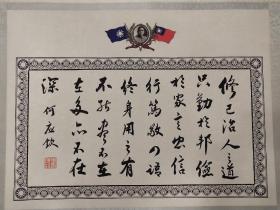 修己治人之道
只勤於邦儉
於家言忠信
行篤敬四語
終身用之有
不能盡不
在多亦不在
深 何應欽